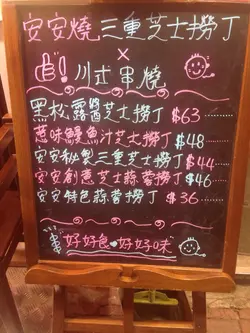 安安燒三重芝士撈丁
×
!川式串燒
黑松露醬芝士撈丁 $63
蔥味鰻魚汁芝士撈丁 $48
安安秘製三重芝士撈丁 $44
安安創意芝士蒜蓉撈丁 $46
安安特色蒜蓉撈丁 $36
好好食 好好味